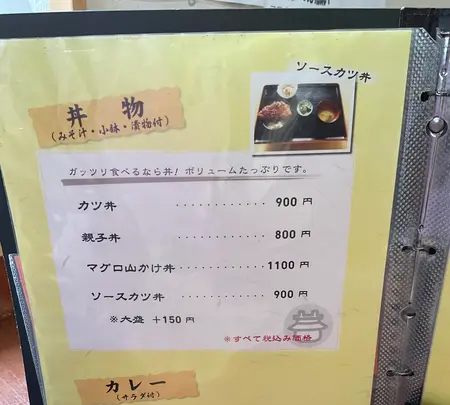 ソースカツ丼
丼 物
(みそ汁・小鉢・漬物付)
ガッツリ食べるなら丼！ボリュームたっぷりです。
カツ丼 ・・・・・・・・・・・・ 900 円
親子丼 ・・・・・・・・・・・・ 800 円
マグロ山かけ丼 ・・・・・・・・・ 1100 円
ソースカツ丼 ・・・・・・・・・ 900 円
※大盛 +150 円
※すべて税込み価格
カレー
(サラダ付)